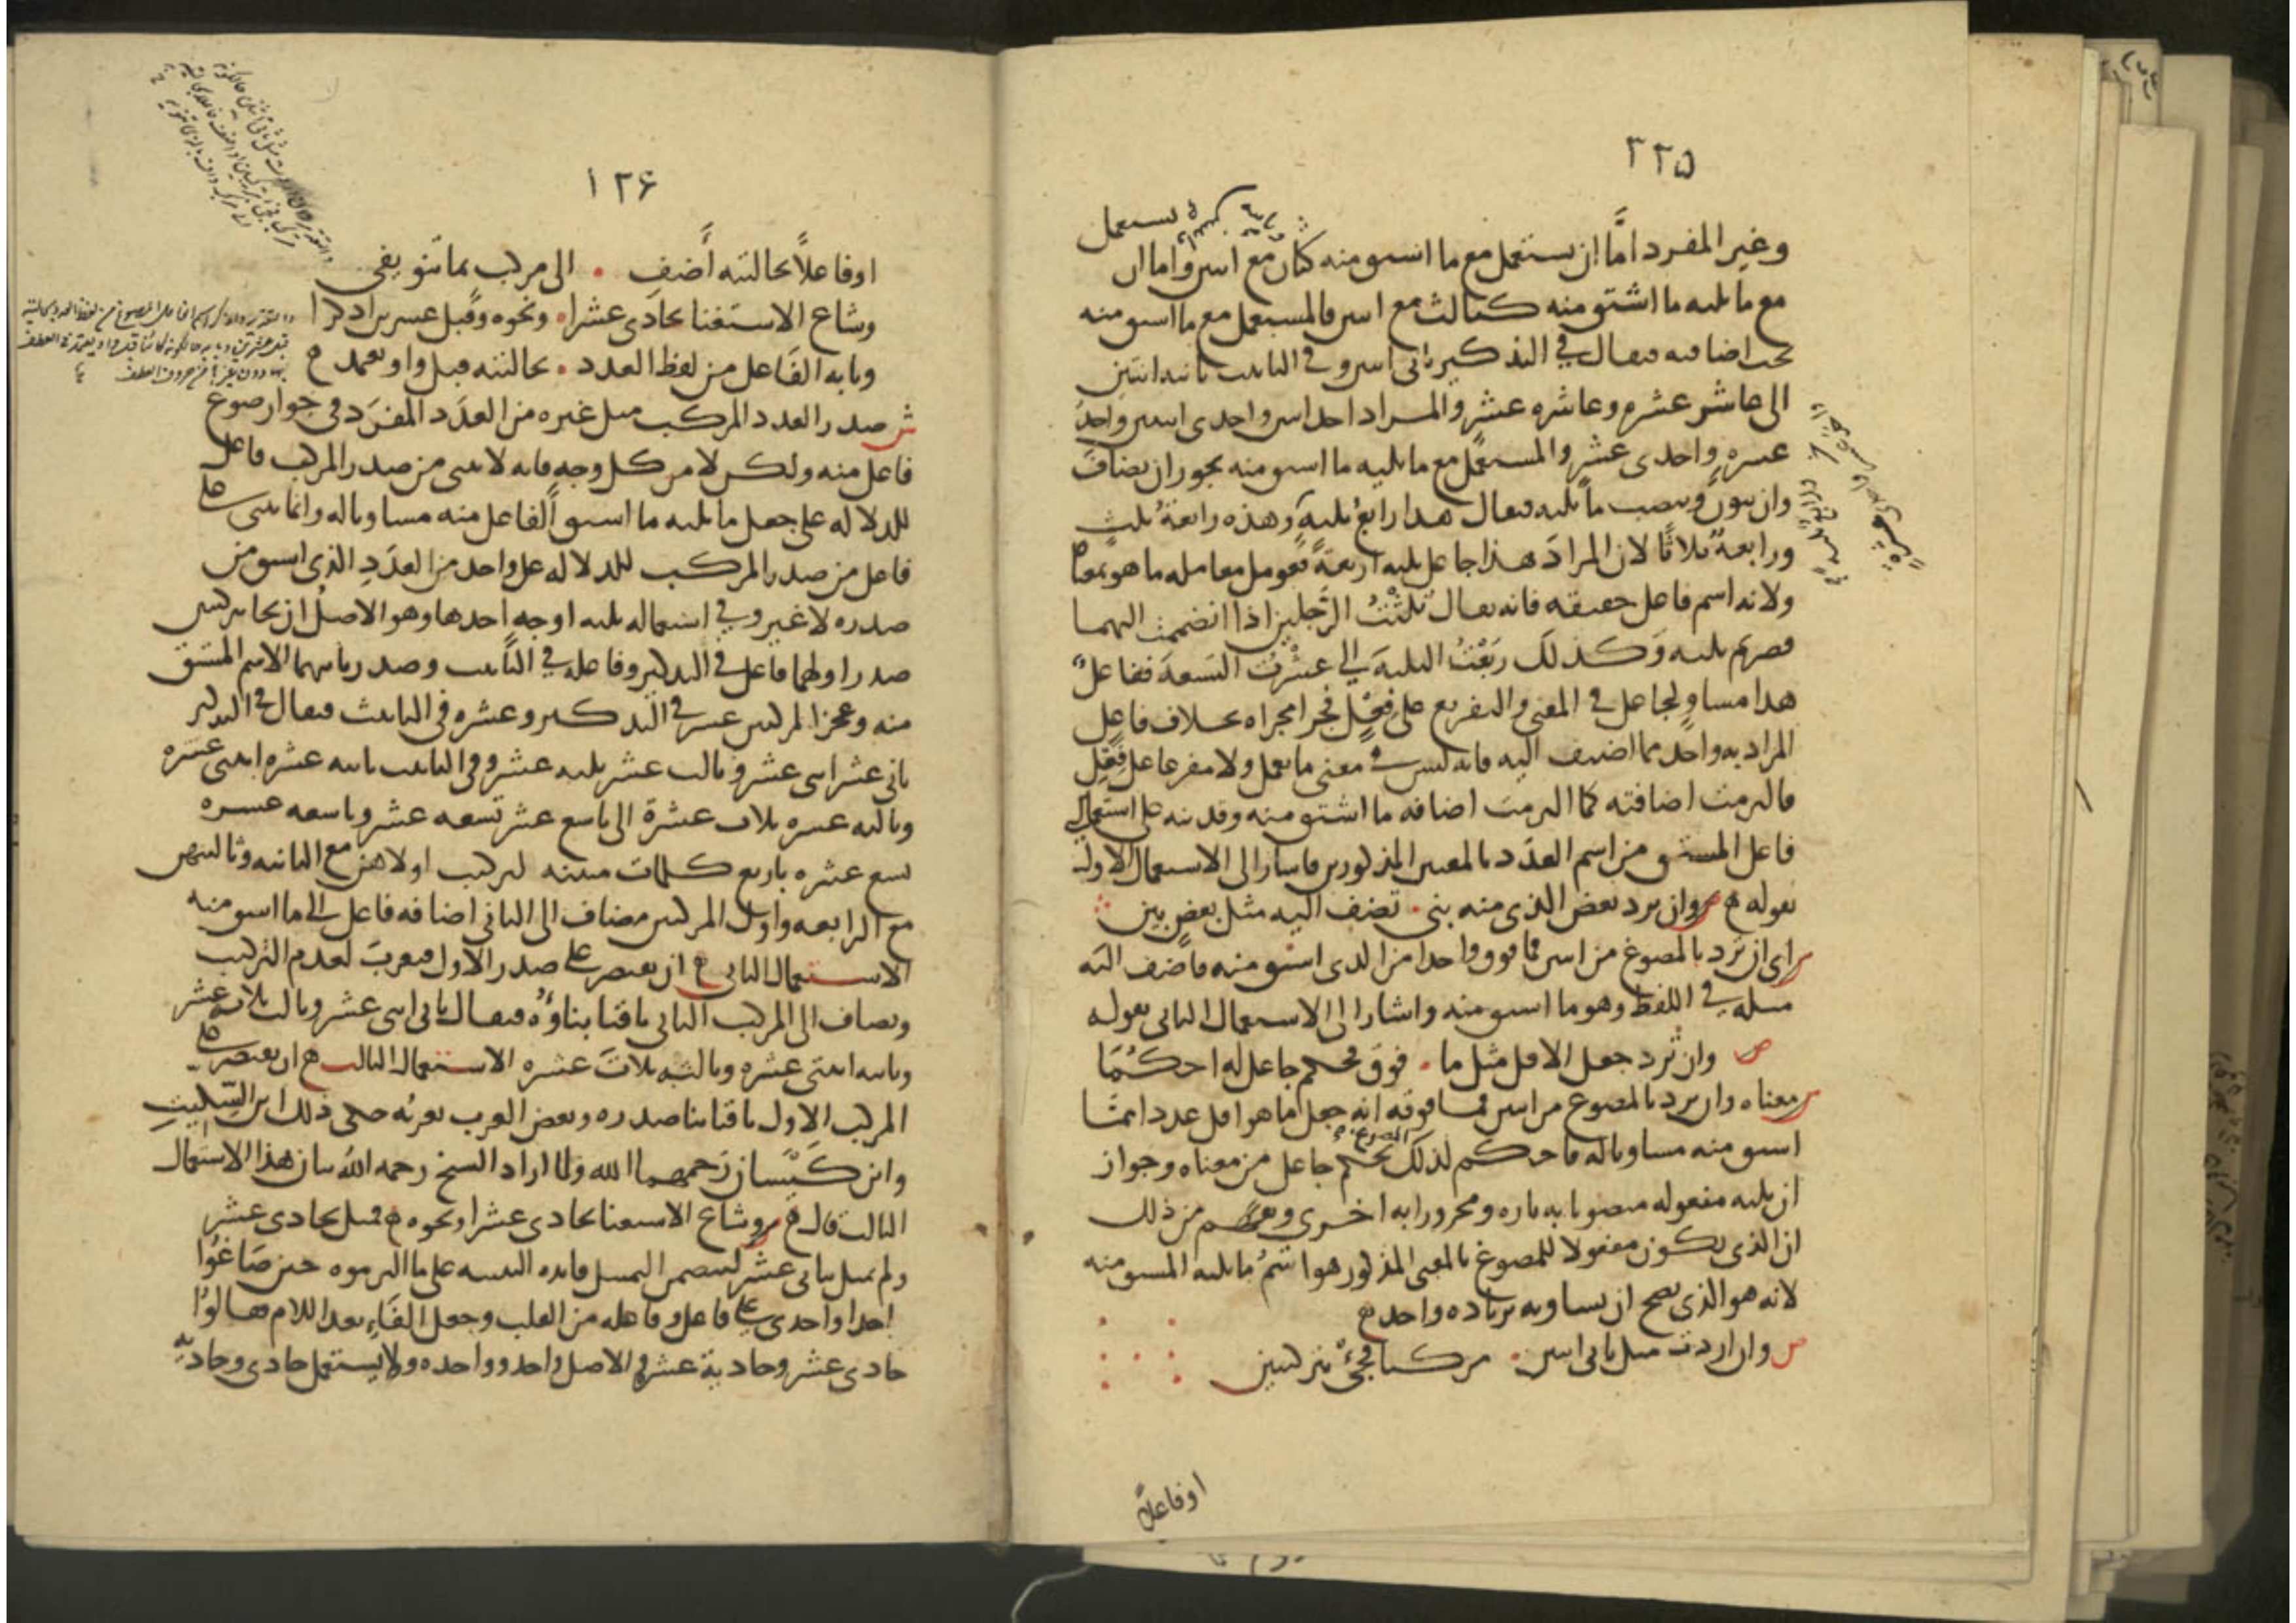 ٣٢٥
وغير المفرد اما ان يستعمل مع ما اشتق منه كثان مع اثنين واما ان يستعمل
مع ما يليه ما اشتق منه كثالث مع اثنين فالمستعمل مع ما اشتق منه
يجب اضافته فيقال في التذكير ثاني اثنين وفي التانيث ثانية اثنتين
الى عاشر عشرة وعاشرة عشر والمراد احد اثنين واحدى اثنتين واحد
عشرة واحدى عشر والمستعمل مع ما يليه ما اشتق منه يجوز ان يضاف
وان ينون وينصب ما يليه فيقال هذا رابع ثلثة وهذه رابعة ثلث
ورابعة ثلاثا لان المراد هذا جاعل ثلثة اربعة فعومل معاملة ما هو بمعناه
ولانه اسم فاعل حقيقة فانه يقال ثلثت الرجلين اذا انضممت اليهما
فصرتم ثلثة وكذلك ربعت الثلثة الى عشرت التسعة ففاعل
هذا مساو لجاعل في المعنى والتفريع على فعل فجرا مجراه بخلاف فاعل
المراد به واحد مما اضيف اليه فانه ليس في معنى ما يعمل ولا مفرعا على فعل
فالتزمت اضافته كما التزمت اضافة ما اشتق منه وقد نبه على استعمال
فاعل المشتق من اسم العدد بالمعنيين المذكورين فاشار الى الاستعمال الاول
بقوله ص وان ترد بعض الذي منه بني تضف اليه مثل بعض بين
ش اي ان ترد بالمصوغ من اثنين فما فوق واحدا من الذي اشتق منه فاضف اليه
مثله في اللفظ وهو ما اشتق منه واشار الى الاستعمال الثاني بقوله
ص وان ترد جعل الاقل مثل ما فوق فحكم جاعل له احكما
ش معناه وان ترد بالمصوغ من اثنين فما فوقه انه جعل ما هو اقل عددا مما
اشتق منه مساويا له فاحكم لذلك بحكم جاعل من معناه وجواز
ان يليه مفعوله منصوبا به تارة ومجرورا به اخرى وفهم من ذلك
ان الذي يكون مفعولا للمصوغ بالمعنى المذكور هو اسم ما يليه المشتق منه
لانه هو الذي يصح ان يساويه بزيادة واحد
ص وان اردت مثل ثاني اثنين مركبا فجئ بتركيبين
اوفاعلا
١٢۶
او فاعلا بحالتيه أضف الى مركب بما تنوي يفي
وشاع الاستغنا بحادي عشرا ونحوه وقبل عشرين اذكرا
وبابه الفاعل من لفظ العدد بحالتيه قبل واو يعتمد
ش صدر العدد المركب مثل غيره من العدد المفرد في جواز صوغ
فاعل منه ولكن لا من كل وجه فانه لا يبنى من صدر المركب فاعل
للدلالة على جعل ما يليه ما اشتق الفاعل منه مساويا له وانما يبنى
فاعل من صدر المركب للدلالة على واحد من العدد الذي اشتق من
صدره لا غير وفي استعماله ثلثة اوجه احدها وهو الاصل ان يجا بتركيبين
صدر اولهما فاعل في التذكير وفاعلة في التانيث وصدر ثانيهما الاسم المشتق
منه وعجز المركبين عشر في التذكير وعشرة في التانيث فيقال في التذكير
ثاني عشر اثني عشر وثالث عشر ثلثة عشر وفي التانيث ثانية عشرة اثنتي عشرة
وثالثة عشرة ثلاث عشرة الى تاسع عشر تسعة عشر وتاسعة عشرة
تسع عشرة باربع كلمات مبنية لتركيب اولاهن مع الثانية وثالثتهن
مع الرابعة واول المركبين مضاف الى الثاني اضافة فاعل الى ما اشتق منه
الاستعمال الثاني ان يقتصر على صدر الاول فيعرب لعدم التركيب
ويضاف الى المركب الثاني باقيا بناؤه فيقال ثاني اثني عشر وثالث ثلاثة عشر
وثانية اثنتي عشرة وثالثة ثلاث عشرة الاستعمال الثالث ان يقتصر على
المركب الاول باقيا بنا صدره وبعض العرب يعربه حكى ذلك ابن السكيت
وابن كيسان رحمهما الله ولما اراد الشيخ رحمه الله بيان هذا الاستعمال
الثالث قال ص وشاع الاستغنا بحادي عشرا ونحوه فمثل بحادي عشر
ولم يمثل بثاني عشر ليتضمن التمثيل فائدة التنبيه على ما التزموه حين صاغوا
احدا واحدى على فاعل وفاعلة من القلب وجعل الفاء بعد اللام فقالوا
حادي عشر وحادية عشر في الاصل واحد وواحدة ولا يستعمل حادي وحادية